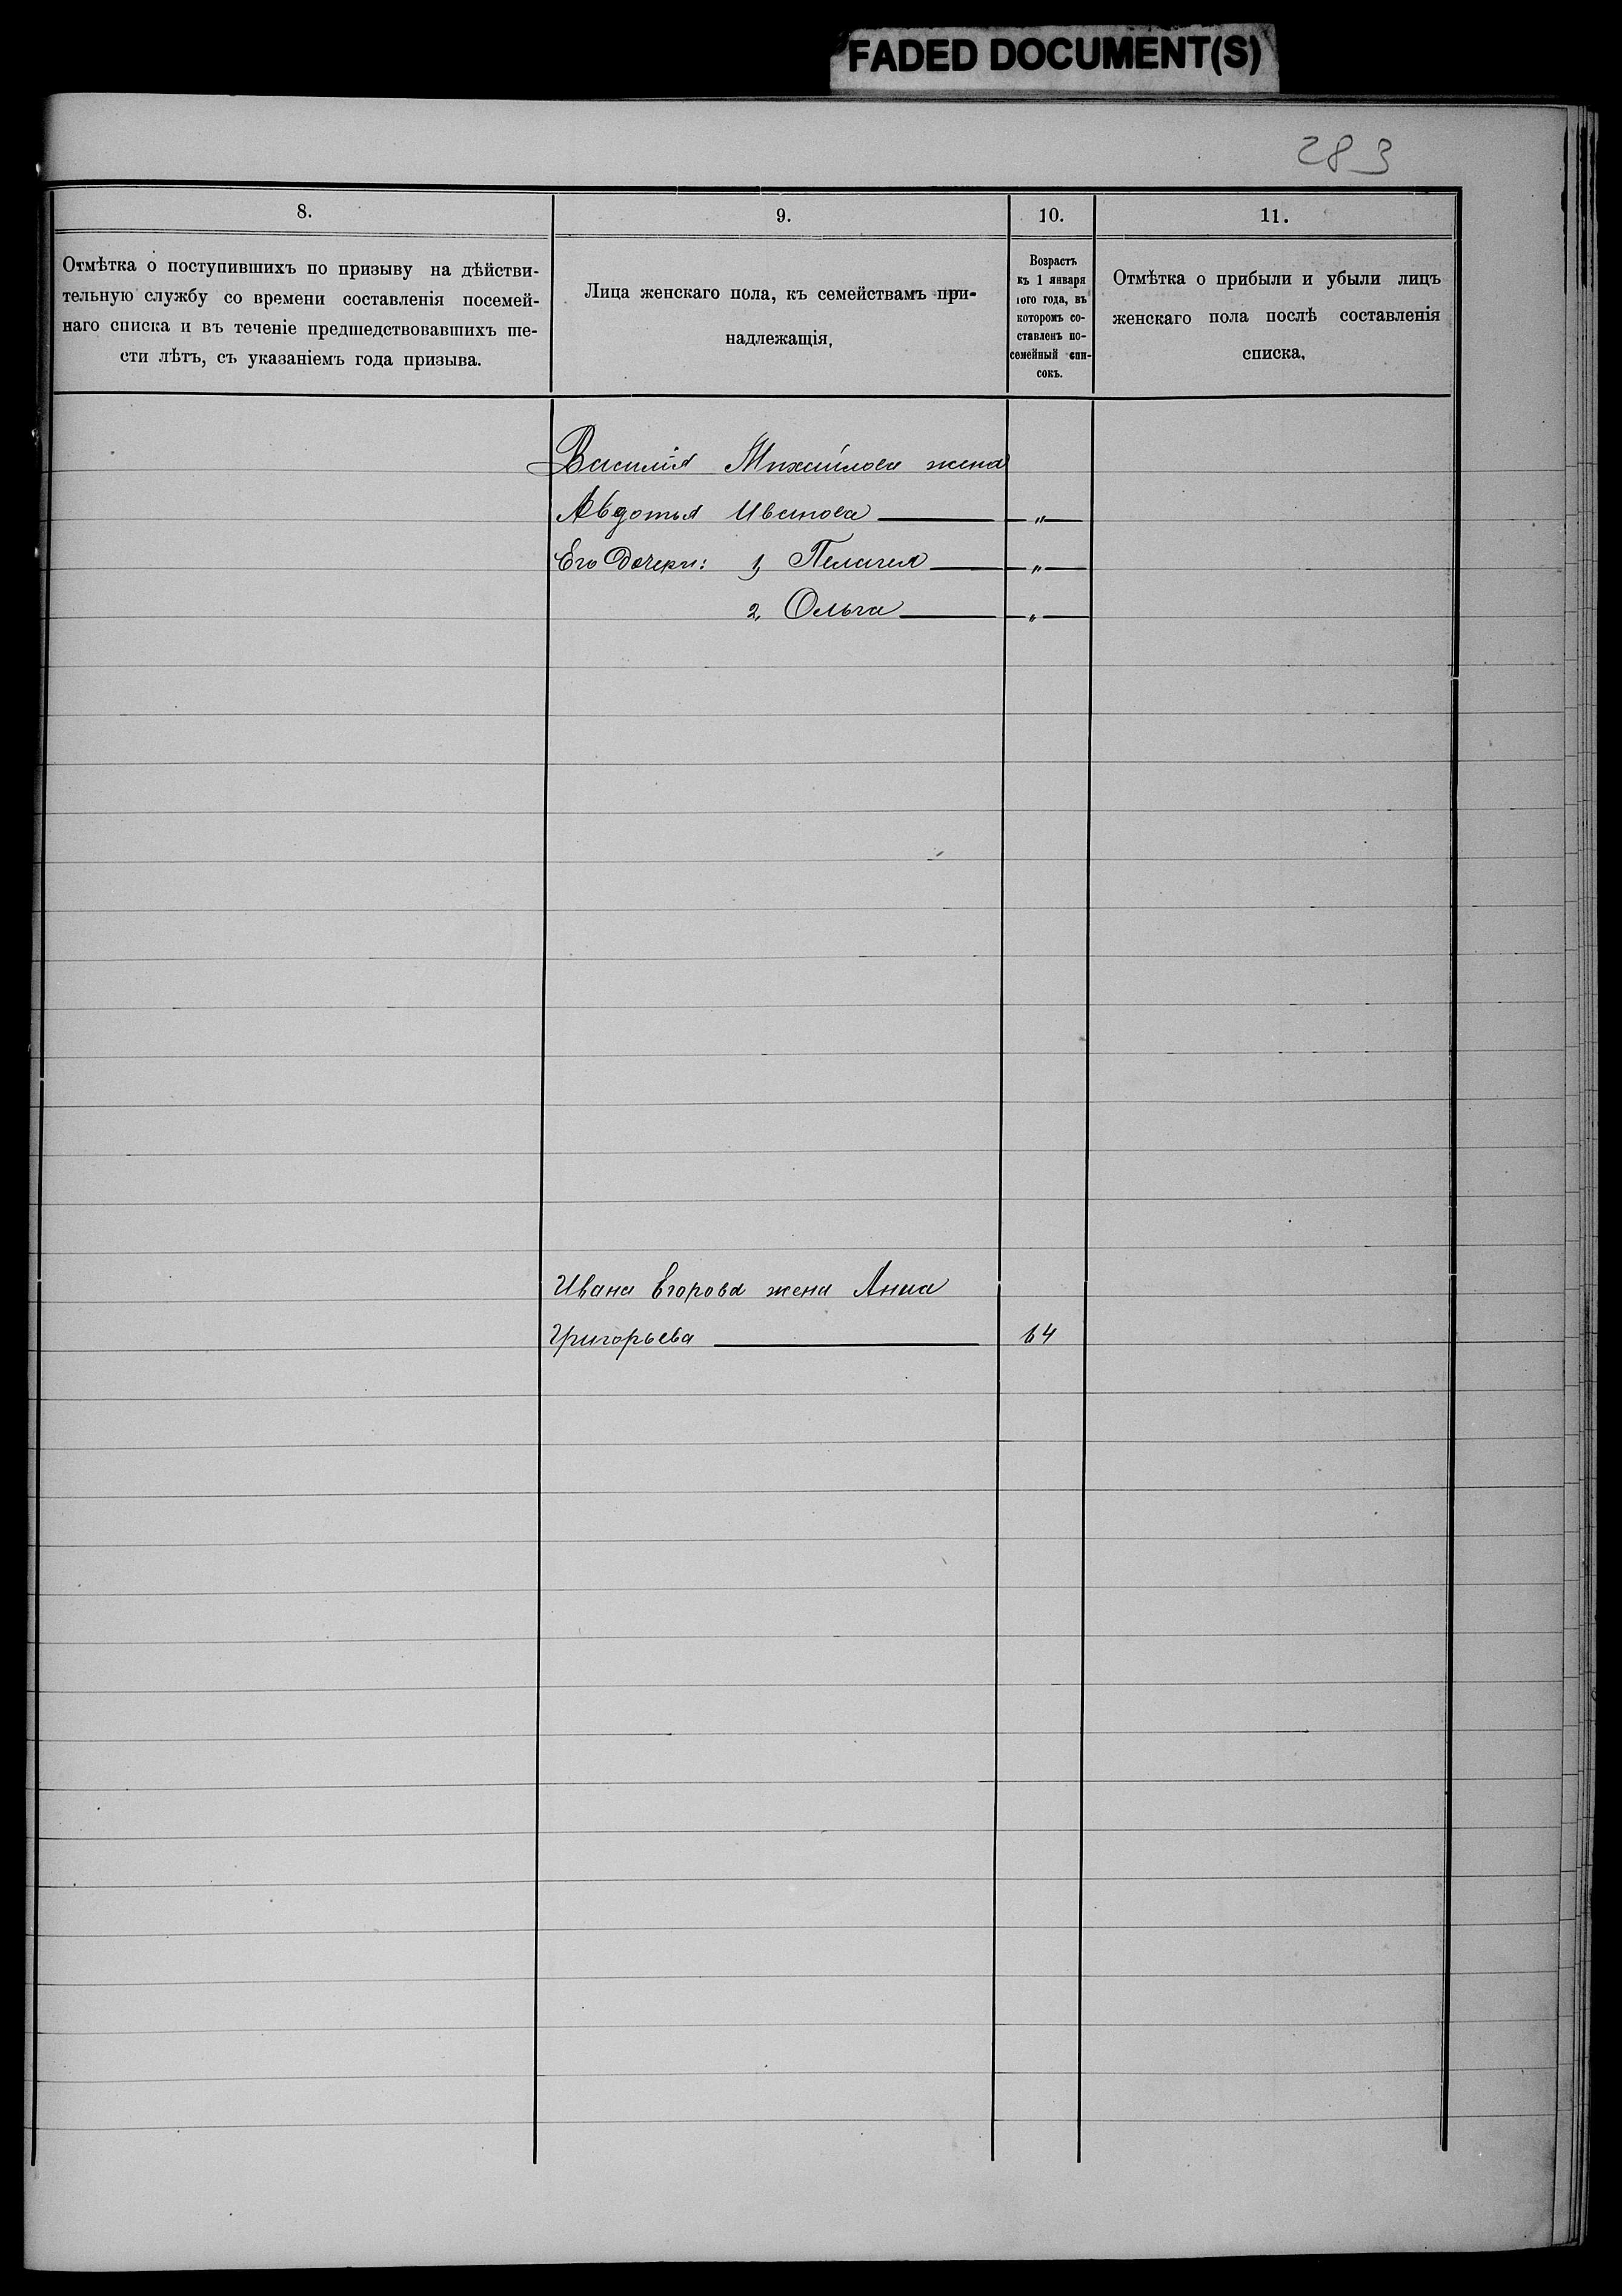 FADED DOCUMENT(S)
283
8.
Отмѣтка о поступившихъ по призыву на дѣйстви-
тельную службу со времени составленія посемей-
наго списка и въ теченіе предшедствовавшихъ ше-
сти лѣтъ, съ указаніемъ года призыва.
9.
Лица женскаго пола, къ семействамъ при-
надлежащія,
10.
Возрастъ
къ 1 января
того года, въ
которомъ со-
ставленъ по-
семейный спи-
сокъ.
11.
Отмѣтка о прибыли и убыли лицъ
женскаго пола послѣ составленія
списка,
Василія Михайлова жена
Авдотья Иванова — „ —
Его дочери: 1, Пелагея — „ —
2, Ольга — „ —
Ивана Егорова жена Анна
Григорьева — 64